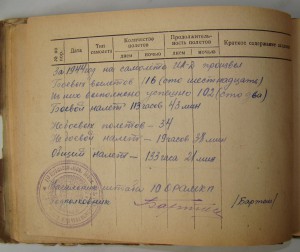 №№ по пор.
Дата
Тип самолета
Количество полетов
днем
ночью
Продолжительность полетов
днем
ночью
Краткое содержание
За 1944 год на самолете ИЛ-2 произвел
Боевых вылетов 116 (сто шестнадцать)
Из них выполнено успешно 102 (сто два)
Боевой налет 113 часов 43 мин
Не боевых полетов - 34
Не боевой налет - 19 часов 38 мин
Общий налет - 133 час 21 мин
Начальник штаба
Подполковник
/Бартош/